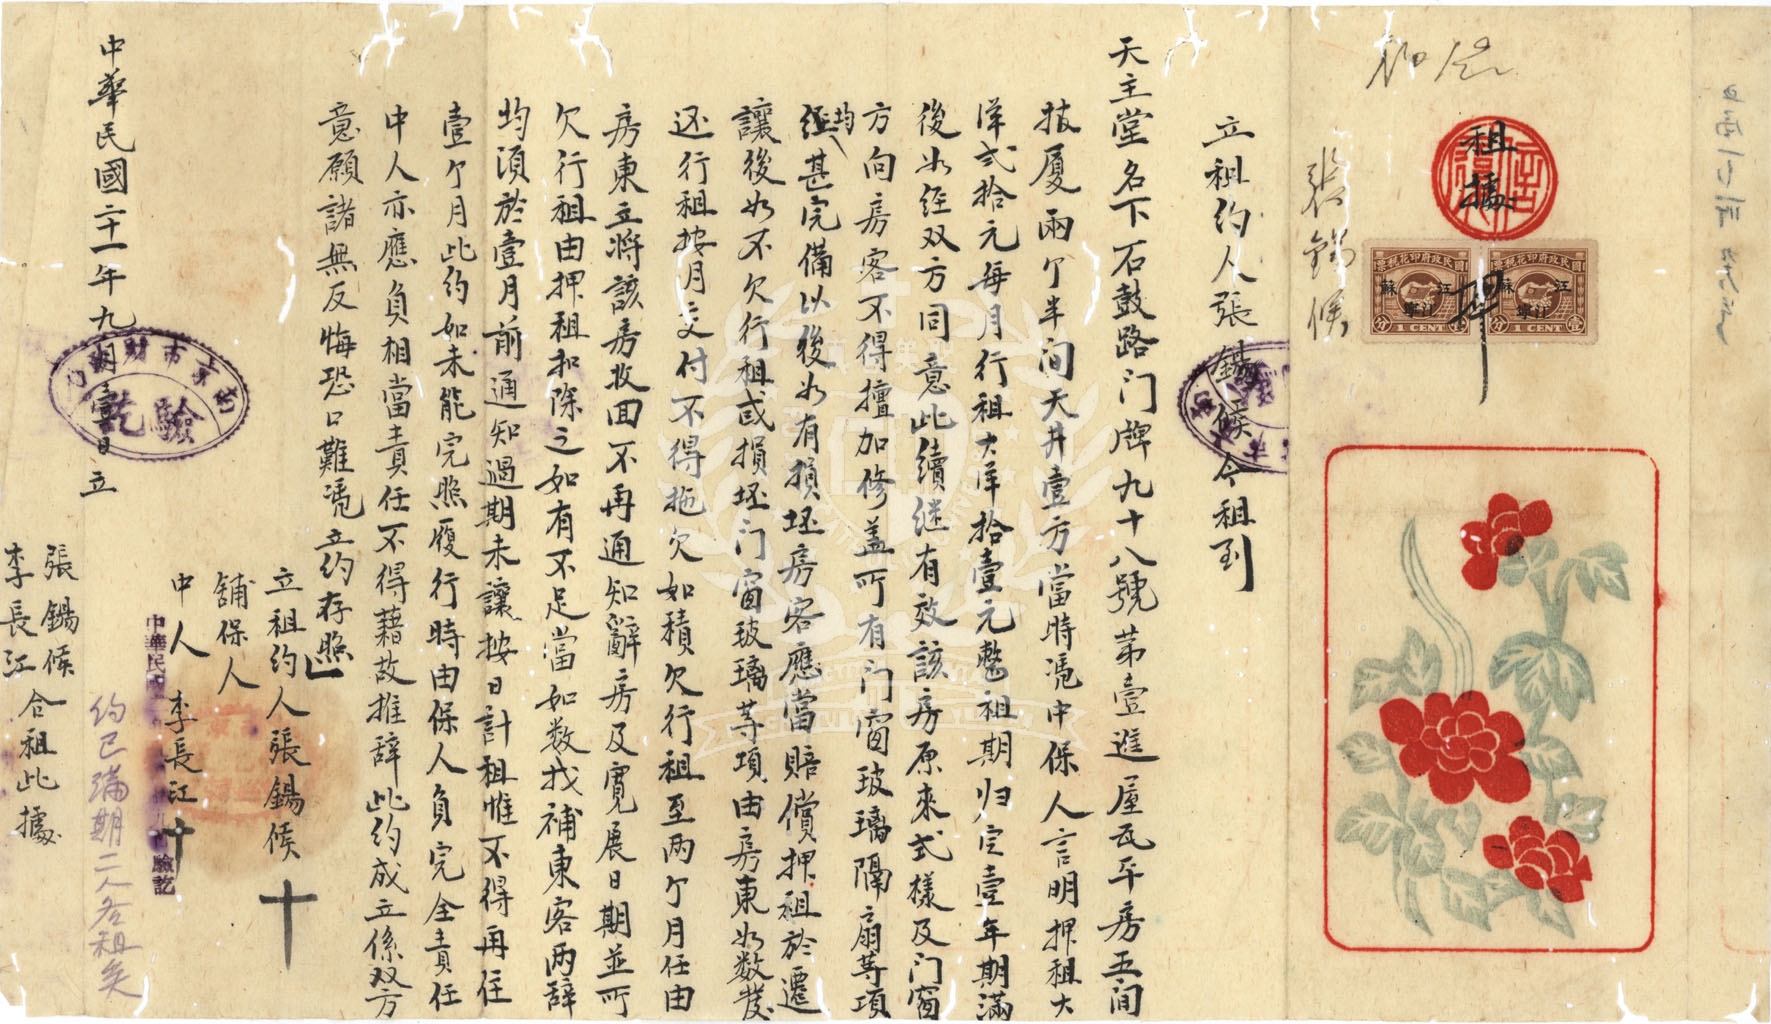 租據
國民政府印花稅票
江蘇
江寧
壹分
1 CENT
國民政府印花稅票
江蘇
江寧
壹分
1 CENT
張錫候
立租约人張錫候今租到
天主堂名下石鼓路门牌九十八號第壹進屋瓦平房五间
披厦兩个半间天井壹方當時凴中保人言明押租大
洋弍拾元每月行租大洋拾壹元整租期归定壹年期滿
後如经双方同意此续継有效該房原来式樣及门窗
方向房客不得擅加修盖所有门窗玻璃隔扇等項
均经甚完備以後如有損坯房客應當賠償押租於遷
讓後如不欠行租或損坯门窗玻璃等項由房東如数發
还行租按月交付不得拖欠如積欠行租至两个月任由
房東立将該房收囬不再通知辭房及寬展日期並所
欠行租由押租扣除之如有不足當如数找補東客两辞
均須於壹月前通知過期未讓按日計租惟不得再住
壹个月此约如未能完照履行時由保人負完全責任
中人亦應負相當責任不得藉故推辞此约成立係双方
意愿諸無反悔恐口難凴立约存照
立租约人張錫候 十
舖保人
中人 李長江 十
中華民國二十一年九月壹日立
南京市財政局
驗訖
约已滿期二人各租矣
張錫候
李長江 合租此據